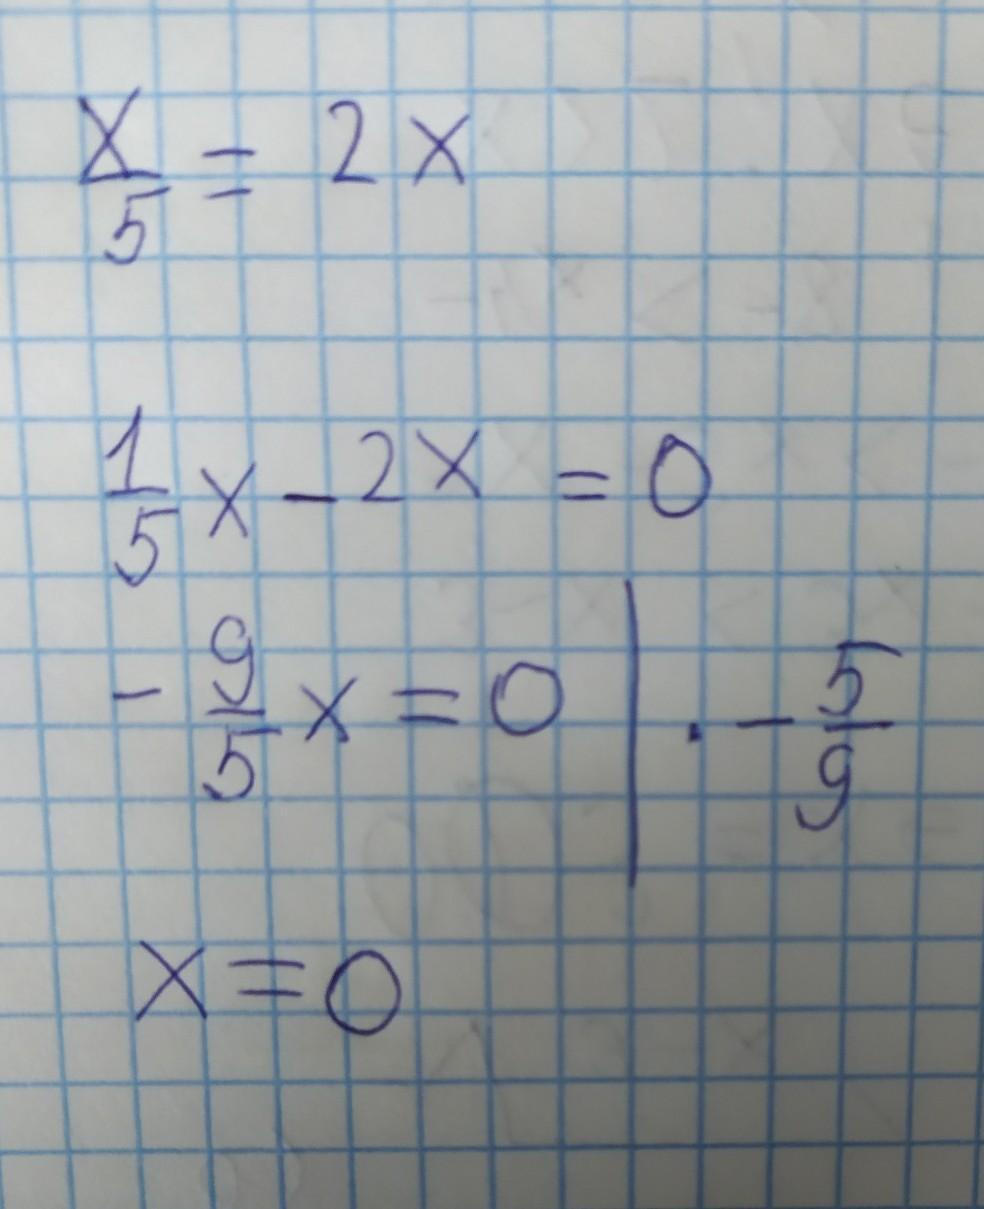 x/5 = 2x
1/5 x - 2x = 0
- 9/5 x = 0 | · - 5/9
x = 0